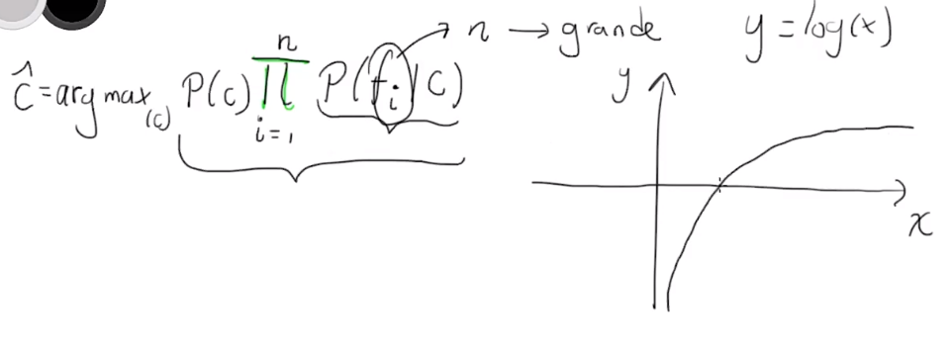 ĉ = argmax(c) P(c) ∏ⁿᵢ₌₁ P(fᵢ|C) → n → grande
y = log(x)
y
x